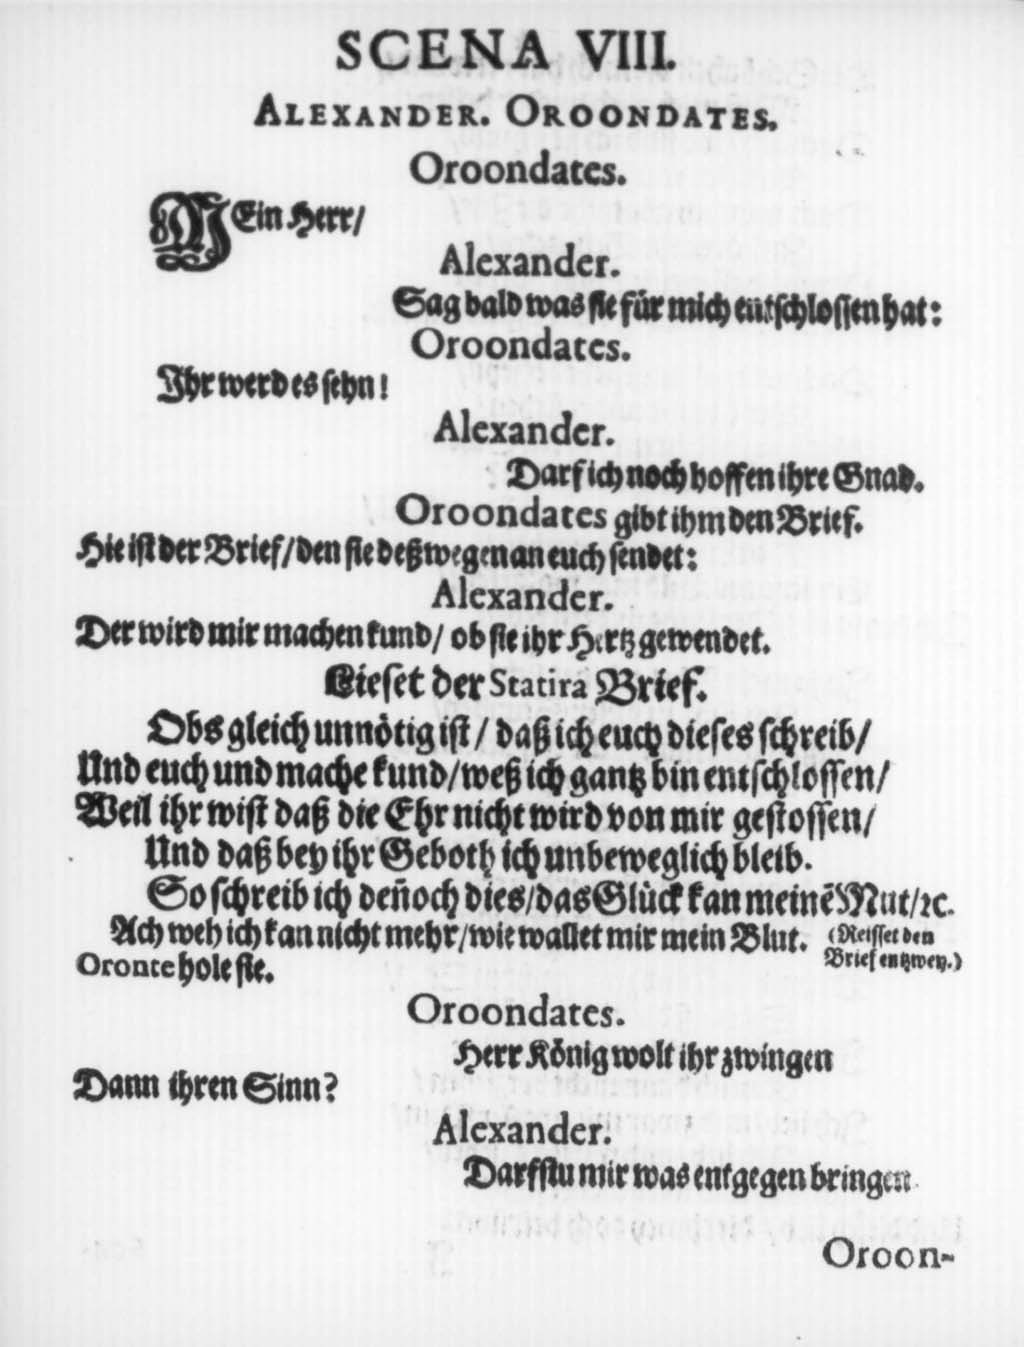 SCENA VIII.
ALEXANDER. OROONDATES.
Oroondates.
MEin Herr/
Alexander.
Sag bald was sie für mich entschlossen hat:
Oroondates.
Ihr werd es sehn!
Alexander.
Darf ich noch hoffen ihre Gnad.
Oroondates gibt ihm den Brief.
Hie ist der Brief/ den sie deßwegen an euch sendet:
Alexander.
Der wird mir machen kund/ ob sie ihr Hertz gewendet.
Lieset der Statira Brief.
Obs gleich unnötig ist/ daß ich euch dieses schreib/
Und euch und mache kund/ weß ich gantz bin entschlossen/
Weil ihr wist daß die Ehr nicht wird von mir gestossen/
Und daß bey ihr Geboth ich unbeweglich bleib.
So schreib ich den̄och dies/ das Glück kan meinē Mut/ ꝛc.
Ach weh ich kan nicht mehr/ wie wallet mir mein Blut. (Reisset den
Oronte hole sie. Brief entzwey.)
Oroondates.
Herr König wolt ihr zwingen
Dann ihren Sinn?
Alexander.
Darfstu mir was entgegen bringen
Oroon-